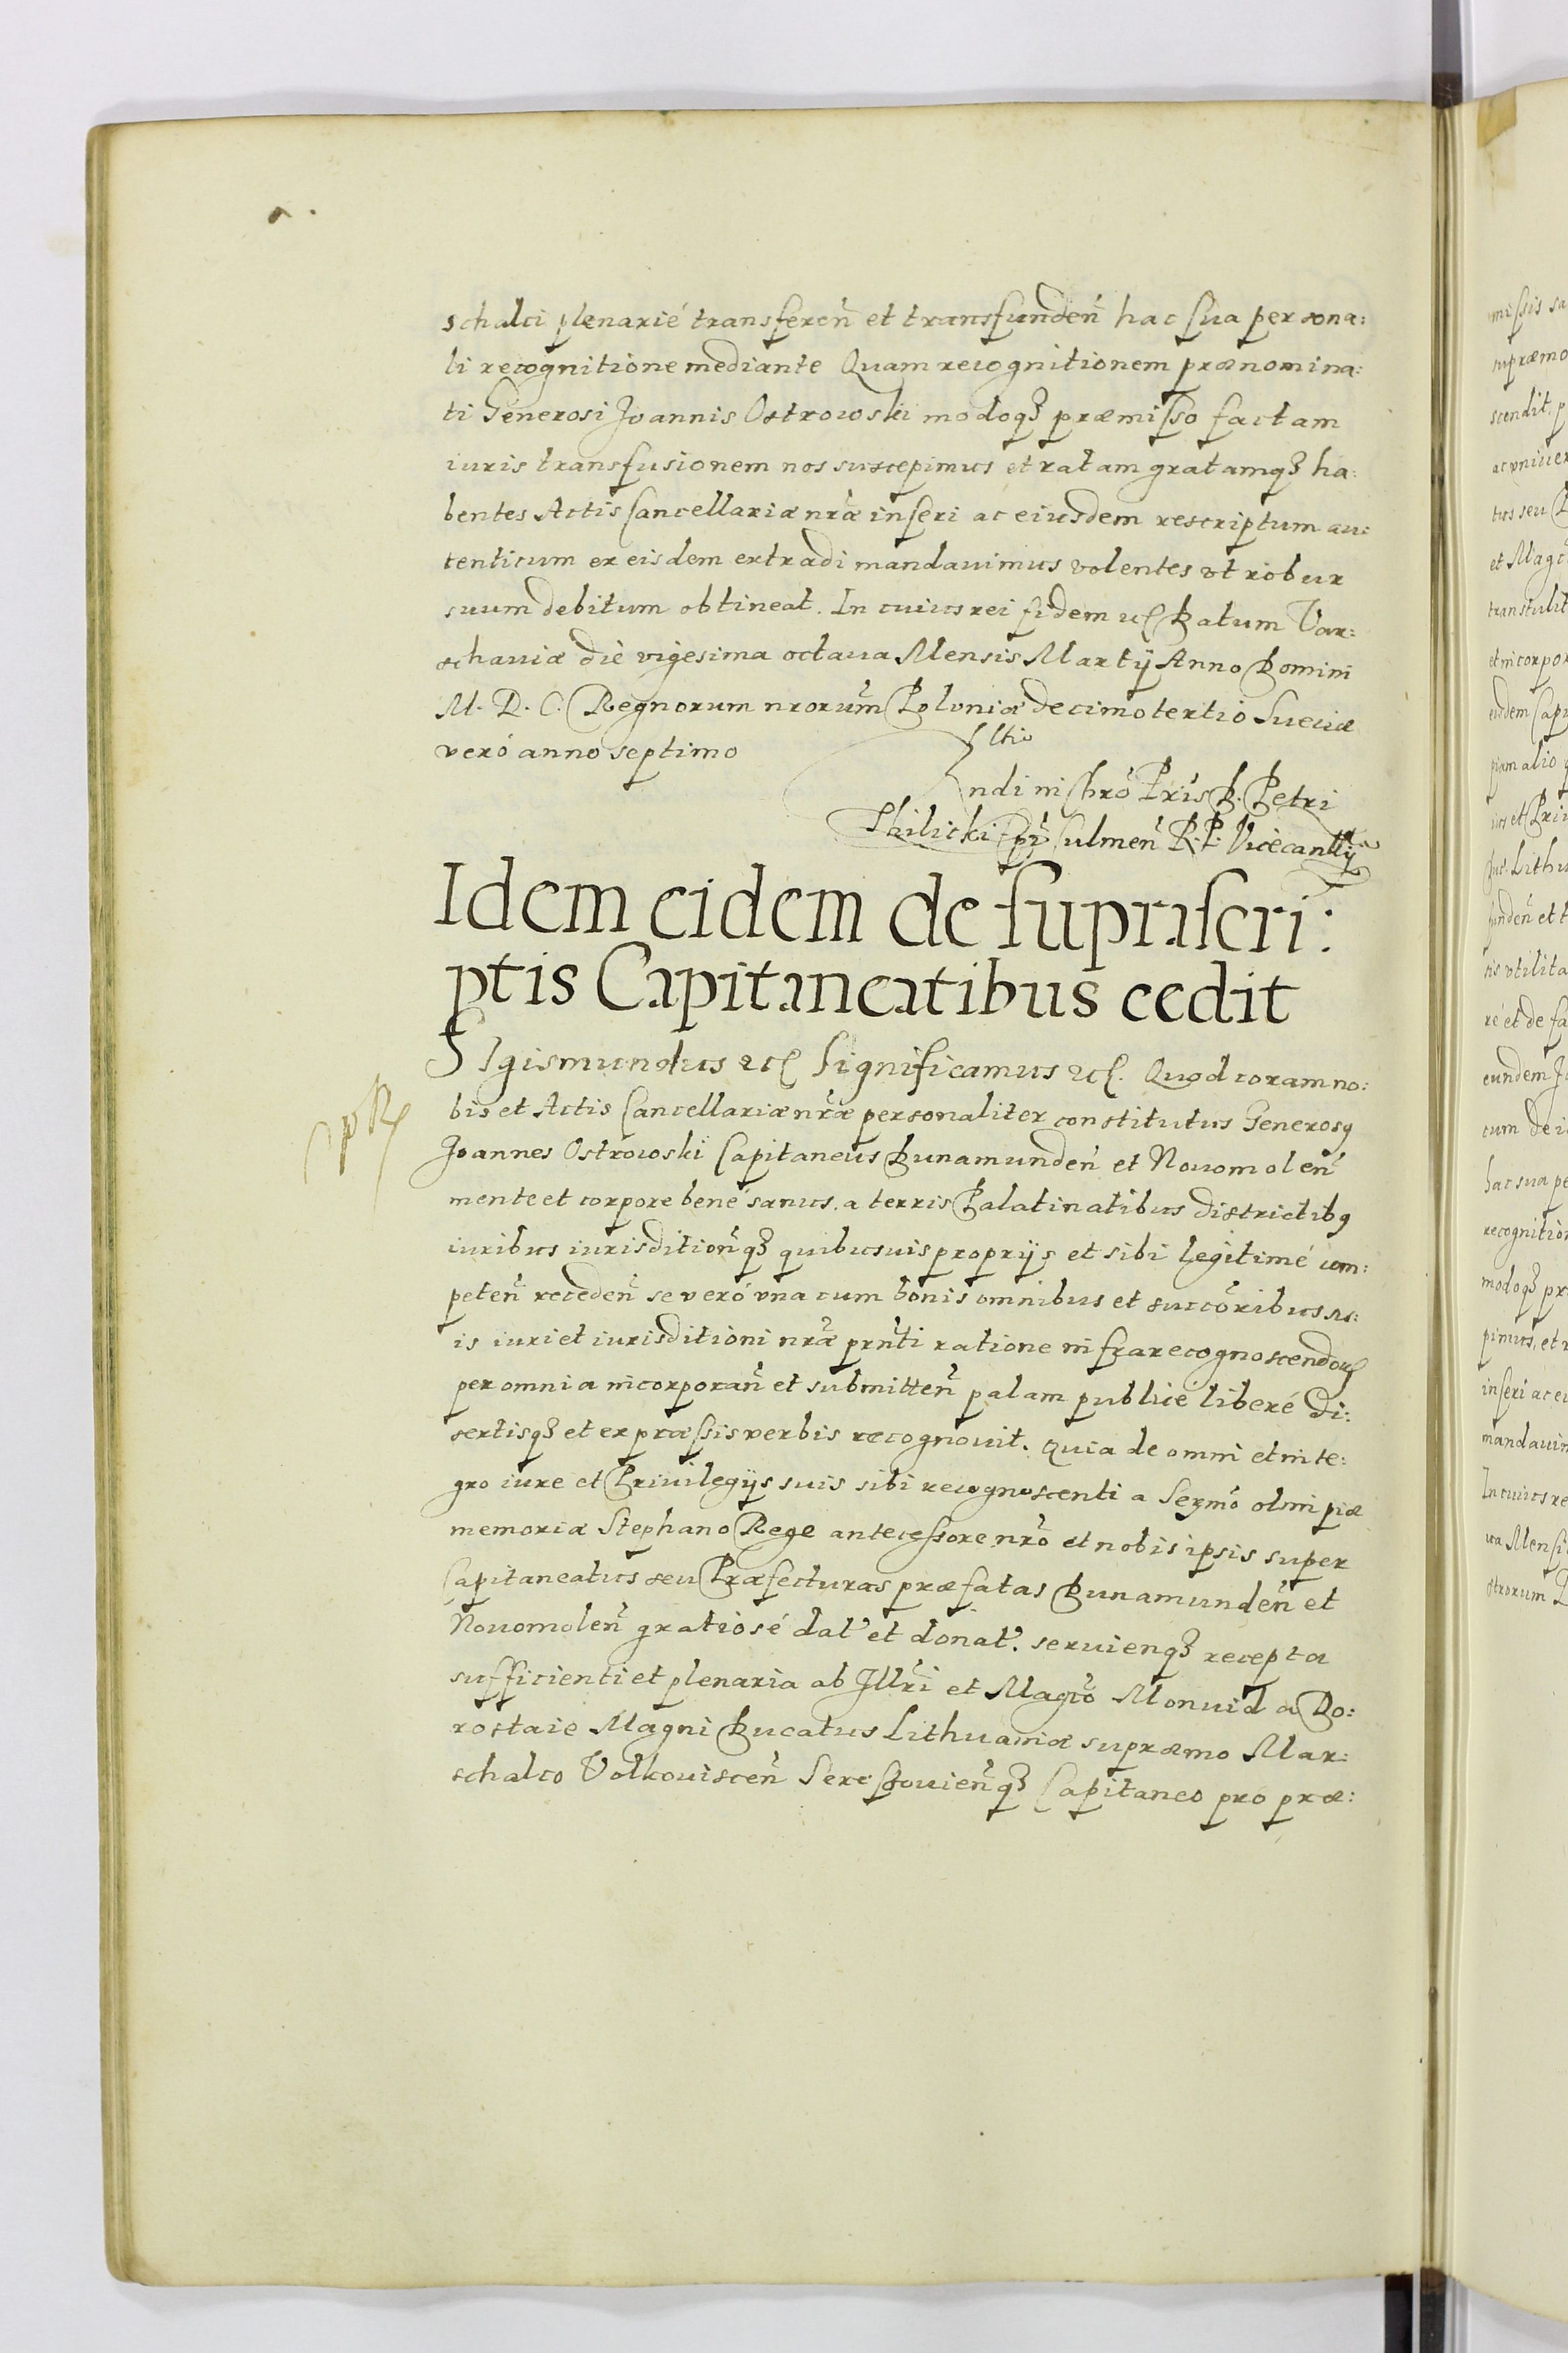 schalci plenarié transferen̄ et transfunden̄ hac sua persona:
li recognitione mediante Quam recognitionem prænomina:
ti Generosi Joannis Ostrowski modoqꝫ præmisso factam
iuris transfusionem nos suscepimus et ratam gratamqꝫ ha:
bentes Actis Cancellariæ nræ inseri ac eiusdem rescriptum au:
tenticum ex eisdem extradi mandauimus volentes vt robur
suum debitum obtineat. In cuius rei fidem etc Datum Var:
schauiæ die vigesima octaua Mensis Martij Anno Domini
M. D. C. Regnorum nrorum Poloniæ decimotertio Sueciæ
veró anno septimo
Rndi in Chro Pris D. Petri
Tilicki Epi Culmen̄ R. P. Vicecanllij
Idem eidem de supraſcri:
ptis Capitaneatibus cedit
SIgismundus etc Significamus etc. Quod coram no:
bis et Actis Cancellariæ nræ personaliter constitutus Generosꝯ
Joannes Ostrowski Capitaneus Dunamunden̄ et Nouomolen̄
mente et corpore bené sanus, a terris Palatinatibus districtibꝯ
iuribus iurisdition̄qꝫ quibusuis proprijs et sibi legitimé com:
peten̄ receden̄ se veró vna cum bonis omnibus et succoribus su:
is iuri et iurisditioni nræ prnti ratione infrarecognoscendoꝝ
per omnia incorporan̄ et submitten̄ palam publicé liberé di:
sertisqꝫ et expræssis verbis recognouit. Quia de omni et inte:
gro iure et Priuilegijs suis sibi recognoscenti a Sermo olim piæ
memoriæ Stephano Rege antecessore nro et nobis ipsis super
Capitaneatus seu Præfecturas præfatas Dunamunden̄ et
Nouomolen̄ gratiosé dat et donat. seruienqꝫ recepta
sufficienti et plenaria ab Illri et Magco Monuid a Do:
rostaie Magni Ducatus Lithuaniæ supræmo Mar:
schalco Volkouiscen̄ Seresouien̄qꝫ Capitaneo pro præ: